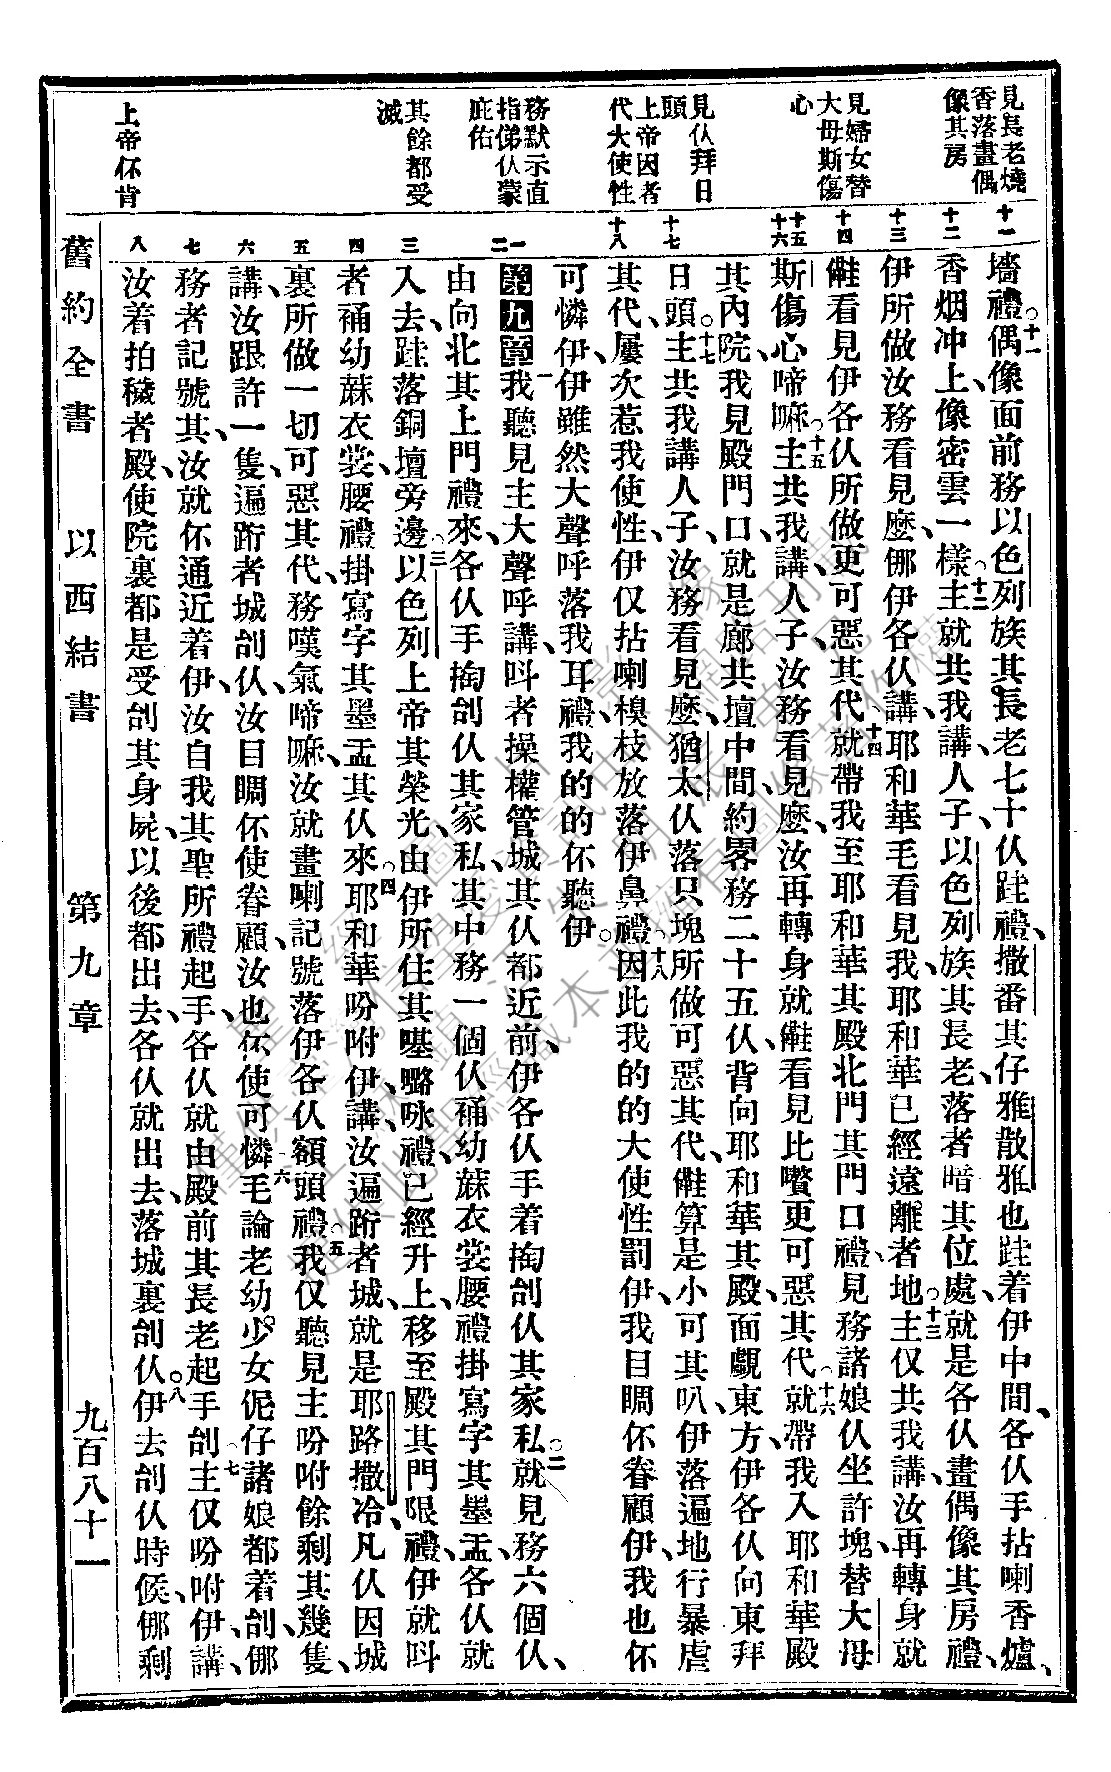 見長老燒
香落畫偶
像其房
見婦女替
大母斯傷
心
見仈拜日
頭
上帝因者
代大使性
務默示直
指俤仈蒙
庇佑
其餘都受
滅
上帝伓肯
十一
十二
十三
十四
十五
十六
十七
十八
一
二
三
四
五
六
七
八
墻禮偶像面前務以色列族其長老七十仈跬禮撒番其仔雅散雅也跬着伊中間各仈手拈喇香爐
香烟冲上像密雲一樣主就共我講人子以色列族其長老落者暗其位處就是各仈畫偶像其房禮
伊所做汝務看見麽倻伊各仈講耶和華毛看見我耶和華已經遠離者地主仅共我講汝再轉身就
看見伊各仈所做更可惡其代就帶我至耶和華其殿北門其門口禮見務諸娘仈坐許塊替大母
斯傷心啼嘛主共我講人子汝務看見麽汝再轉身就看見比嚽更可惡其代就帶我入耶和華殿
其內院我見殿門口就是廊共壇中間約畧務二十五仈背向耶和華其殿面覷東方伊各仈向東拜
日頭主共我講人子汝務看見麽猶太仈落只塊所做可惡其代算是小可其叭伊落遍地行暴虐
其代屢次惹我使性伊仅拈喇模枝放落伊鼻禮因此我的的大使性罰伊我目睭伓眷顧伊我也伓
可憐伊伊雖然大聲呼落我耳禮我的的伓聽伊
第九章我聽見主大聲呼講呌者操權管城其仈都近前伊各仈手着掏刣仈其家私就見務六個仈
由向北其上門禮來各仈手掏刣仈其家私其中務一個仈𧙕幼蔴衣裳腰禮掛寫字其墨盂各仈就
入去跬落銅壇旁邊以色列上帝其榮光由伊所住其𠼻𠸄咏禮已經升上移至殿其門限禮伊就呌
者𧙕幼蔴衣裳腰禮掛寫字其墨盂其仈來耶和華吩咐伊講汝遍跼者城就是耶路撒冷凡仈因城
裏所做一切可惡其代務嘆氣啼嘛汝就畫喇記號落伊各仈額頭禮我仅聽見主吩咐餘剩其幾隻
講汝跟許一隻遍跼者城刣仈汝目睭伓使眷顧汝也伓使可憐毛論老幼少女伲仔諸娘都着刣倻
務者記號其汝就伓通近着伊汝自我其聖所禮起手各仈就由殿前其長老起手刣主仅吩咐伊講
汝着拍穢者殿使院裏都是受刣其身屍以後都出去各仈就出去落城裏刣仈伊去刣仈時候倻剩
舊約全書
以西結書
第九章
九百八十一